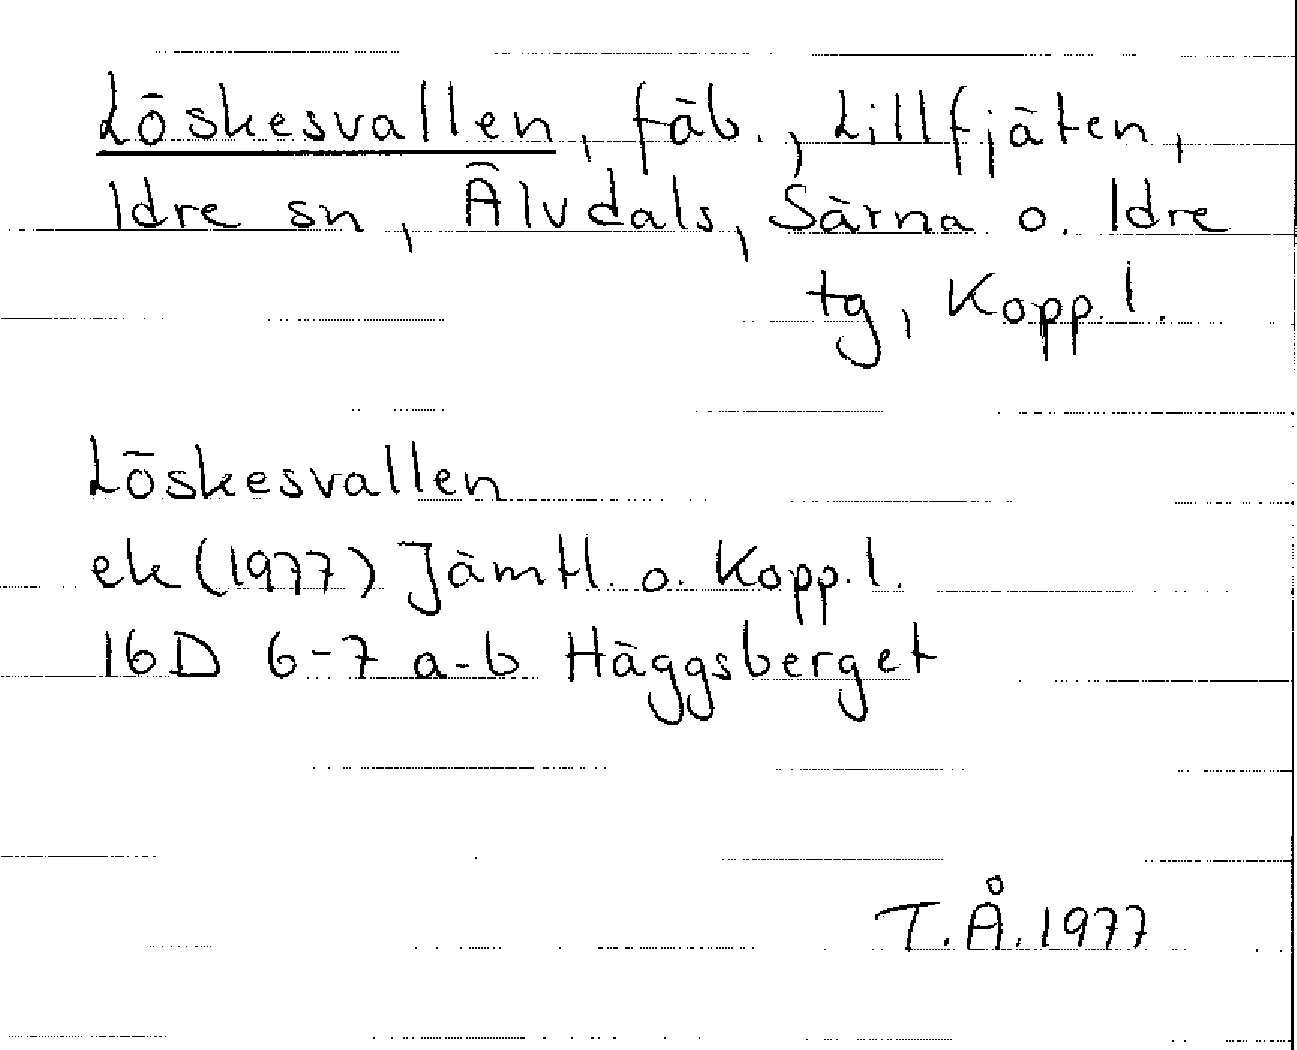 Löskesvallen, fäb., Lillfjäten,
Idre sn, Älvdals, Särna o. Idre
tg, Kopp. l.
Löskesvallen
ek (1977) Jämtl. o. Kopp. l.
16D 6-7 a-b Häggsberget
T.Å. 1977